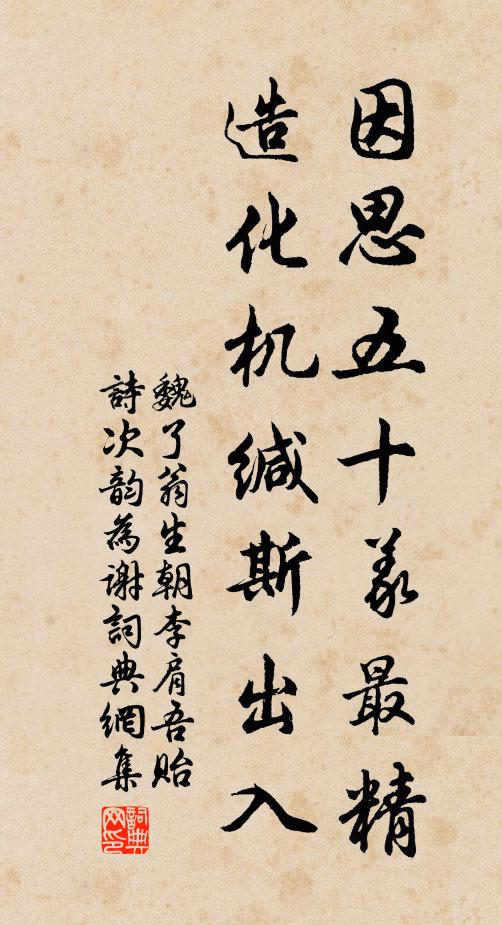 因思五十義最精
造化机缄斯出入
魏了翁生朝李肩吾貽
詩次韵為谢詞典網集
詞典网印